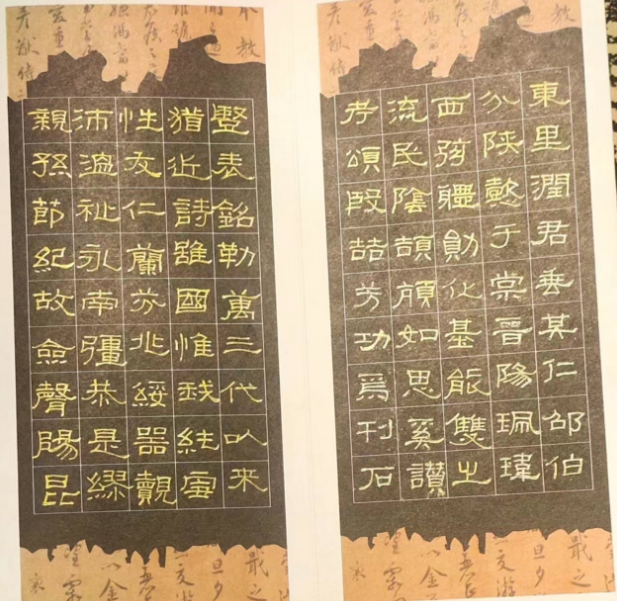 東里潤君垂其仁邵伯
分陝懿于棠晉陽珮瑋
西弦體勛化基能雙之
流民陰頡頏如思奚讚
考頌殷喆芳功焉刊石
豎表銘勒萬三代以来
猶近詩雖國惟我純雪
性友仁蘭芬兆綏器覿
沛溫祉永南疆恭是繆
親孫節紀故僉聲陽昆